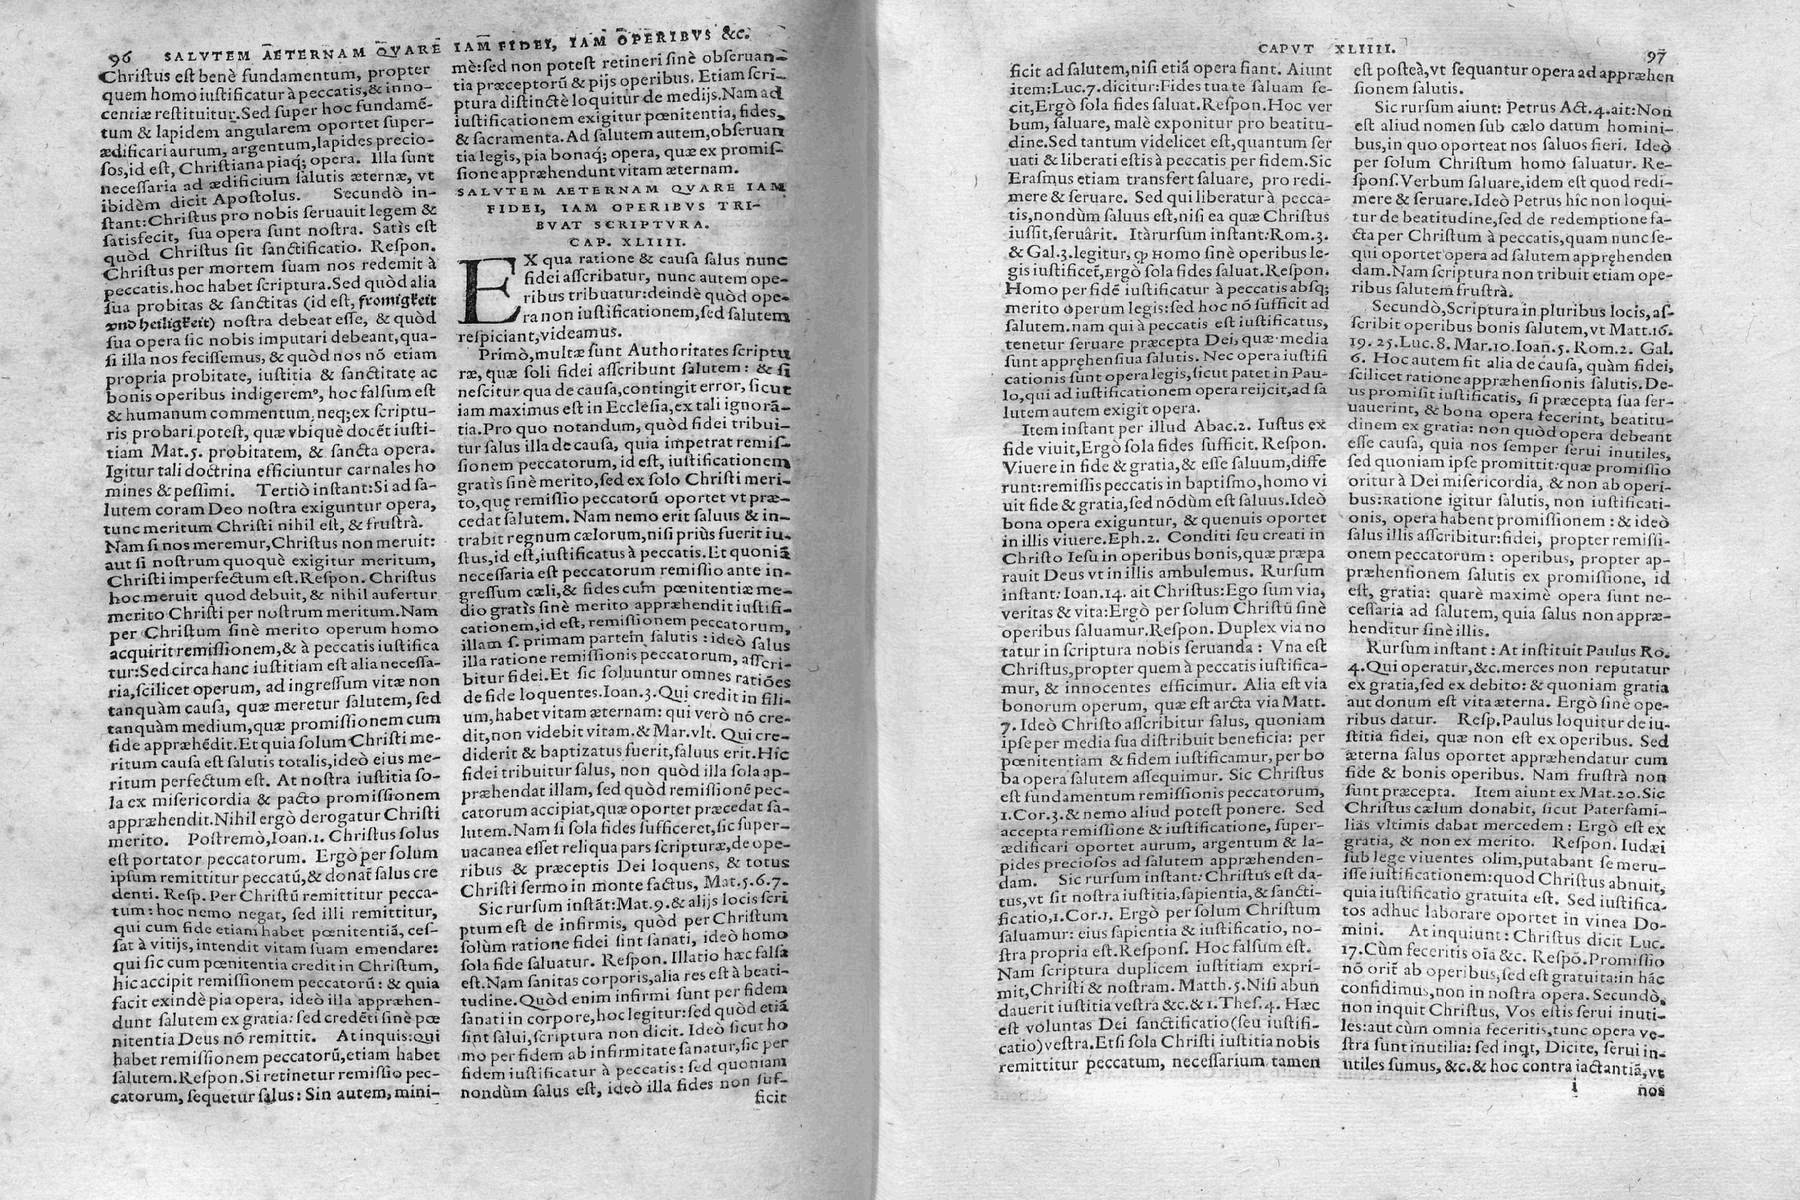 96 SALVTEM AETERNAM QVARE IAM FIDEI, IAM OPERIBVS &c.
Chriſtus eſt benè fundamentum, propter
quem homo iuſtificatur à peccatis, & inno-
centiæ reſtituitur. Sed ſuper hoc fundamē-
tum & lapidem angularem oportet ſuper-
ædificari aurum, argentum, lapides precio-
ſos, id eſt, Chriſtiana piaq; opera. Illa ſunt
neceſſaria ad ædificium ſalutis æternæ, vt
ibidem dicit Apoſtolus. Secundò in-
ſtant: Chriſtus pro nobis ſeruauit legem &
ſatisfecit, ſua opera ſunt noſtra. Satis eſt
quòd Chriſtus ſit ſanctificatio. Reſpon.
Chriſtus per mortem ſuam nos redemit à
peccatis. hoc habet ſcriptura. Sed quòd alia
ſua probitas & ſanctitas (id eſt, fromigkeit
vnd heiligkeit) noſtra debeat eſſe, & quòd
ſua opera ſic nobis imputari debeant, qua-
ſi illa nos feciſſemus, & quòd nos nō etiam
propria probitate, iuſtitia & ſanctitate ac
bonis operibus indigerem⁹, hoc falſum eſt
& humanum commentum, neq; ex ſcriptu-
ris probari poteſt, quæ vbiquè docēt iuſti-
tiam Mat. 5. probitatem, & ſancta opera.
Igitur tali doctrina efficiuntur carnales ho
mines & peſſimi. Tertiò inſtant: Si ad ſa-
lutem coram Deo noſtra exiguntur opera,
tunc meritum Chriſti nihil eſt, & fruſtrà.
Nam ſi nos meremur, Chriſtus non meruit:
aut ſi noſtrum quoquè exigitur meritum,
Chriſti imperfectum eſt. Reſpon. Chriſtus
hoc meruit quod debuit, & nihil aufertur
merito Chriſti per noſtrum meritum. Nam
per Chriſtum ſinè merito operum homo
acquirit remiſſionem, & à peccatis iuſtifica
tur: Sed circa hanc iuſtitiam eſt alia neceſſa-
ria, ſcilicet operum, ad ingreſſum vitæ non
tanquàm cauſa, quæ meretur ſalutem, ſed
tanquàm medium, quæ promiſſionem cum
fide appræhēdit. Et quia ſolum Chriſti me-
ritum cauſa eſt ſalutis totalis, ideò eius me-
ritum perfectum eſt. At noſtra iuſtitia ſo-
la ex miſericordia & pacto promiſſionem
appræhendit. Nihil ergò derogatur Chriſti
merito. Poſtremò, Ioan. 1. Chriſtus ſolus
eſt portator peccatorum. Ergò per ſolum
ipſum remittitur peccatū, & donat̃ ſalus cre
denti. Reſp. Per Chriſtū remittitur pecca-
tum: hoc nemo negat, ſed illi remittitur,
qui cum fide etiam habet pœnitentiā, ceſ-
ſat à vitijs, intendit vitam ſuam emendare:
qui ſic cum pœnitentia credit in Chriſtum,
hic accipit remiſſionem peccatorū: & quia
facit exindè pia opera, ideò illa appræhen-
dunt ſalutem ex gratia: ſed credēti ſinè pœ
nitentia Deus nō remittit. At inquis: qui
habet remiſſionem peccatorū, etiam habet
ſalutem. Reſpon. Si retinetur remiſſio pec-
catorum, ſequetur ſalus: Sin autem, mini-
mè: ſed non poteſt retineri ſinè obſeruan-
tia præceptorū & pijs operibus. Etiam ſcri-
ptura diſtinctè loquitur de medijs. Nam ad
iuſtificationem exigitur pœnitentia, fides,
& ſacramenta. Ad ſalutem autem, obſeruan
tia legis, pia bonaq; opera, quæ ex promiſ-
ſione appræhendunt vitam æternam.
SALVTEM AETERNAM QVARE IAM
FIDEI, IAM OPERIBVS TRI-
BVAT SCRIPTVRA.
CAP. XLIIII.
EX qua ratione & cauſa ſalus nunc
fidei aſſcribatur, nunc autem ope-
ribus tribuatur: deindè quòd ope-
ra non iuſtificationem, ſed ſalutem
reſpiciant, videamus.
Primò, multæ ſunt Authoritates ſcriptu
ræ, quæ ſoli fidei aſſcribunt ſalutem: & ſi
neſcitur qua de cauſa, contingit error, ſicut
iam maximus eſt in Eccleſia, ex tali ignorā-
tia. Pro quo notandum, quòd fidei tribui-
tur ſalus illa de cauſa, quia impetrat remiſ-
ſionem peccatorum, id eſt, iuſtificationem
gratis ſinè merito, ſed ex ſolo Chriſti meri-
to, quę remiſſio peccatorū oportet vt præ-
cedat ſalutem. Nam nemo erit ſaluus & in-
trabit regnum cælorum, niſi priùs fuerit iu-
ſtus, id eſt, iuſtificatus à peccatis. Et quoniā
neceſſaria eſt peccatorum remiſſio ante in-
greſſum cæli, & fides cum pœnitentiæ me-
dio gratis ſinè merito appræhendit iuſtifi-
cationem, id eſt, remiſſionem peccatorum,
illam ſ. primam partem ſalutis: ideò ſalus
illa ratione remiſſionis peccatorum, aſſcri-
bitur fidei. Et ſic ſoluuntur omnes ratiões
de fide loquentes. Ioan. 3. Qui credit in fili-
um, habet vitam æternam: qui verò nō cre-
dit, non videbit vitam. & Mar. vlt. Qui cre-
diderit & baptizatus fuerit, ſaluus erit. Hîc
fidei tribuitur ſalus, non quòd illa ſola ap-
præhendat illam, ſed quòd remiſſionē pec-
catorum accipiat, quæ oportet præcedat ſa-
lutem. Nam ſi ſola fides ſufficeret, ſic ſuper-
uacanea eſſet reliqua pars ſcripturæ, de ope-
ribus & præceptis Dei loquens, & totus
Chriſti ſermo in monte factus, Mat. 5. 6. 7.
Sic rurſum inſtāt: Mat. 9. & alijs locis ſcri
ptum eſt de infirmis, quòd per Chriſtum
ſolùm ratione fidei ſint ſanati, ideò homo
ſola fide ſaluatur. Reſpon. Illatio hæc falſa
eſt. Nam ſanitas corporis, alia res eſt à beati-
tudine. Quòd enim infirmi ſunt per fidem
ſanati in corpore, hoc legitur: ſed quòd etiā
ſint ſalui, ſcriptura non dicit. Ideò ſicut ho
mo per fidem ab infirmitate ſanatur, ſic per
fidem iuſtificatur à peccatis: ſed quoniam
nondùm ſalus eſt, ideò illa fides non ſuf-
ficit
CAPVT XLIIII. 97
ficit ad ſalutem, niſi etiā opera fiant. Aiunt
item: Luc. 7. dicitur: Fides tua te ſaluam fe-
cit, Ergò ſola fides ſaluat. Reſpon. Hoc ver
bum, ſaluare, malè exponitur pro beatitu-
dine. Sed tantum videlicet eſt, quantum ſer
uati & liberati eſtis à peccatis per fidem. Sic
Eraſmus etiam transfert ſaluare, pro redi-
mere & ſeruare. Sed qui liberatur à pecca-
tis, nondùm ſaluus eſt, niſi ea quæ Chriſtus
iuſſit, ſeruârit. Itàrurſum inſtant: Rom. 3.
& Gal. 3. legitur, ꝙ Homo ſinè operibus le-
gis iuſtificet̃, Ergò ſola fides ſaluat. Reſpon.
Homo per fidē iuſtificatur à peccatis abſq;
merito operum legis: ſed hoc nō ſufficit ad
ſalutem. nam qui à peccatis eſt iuſtificatus,
tenetur ſeruare præcepta Dei, quæ media
ſunt appręhenſiua ſalutis. Nec opera iuſtifi
cationis ſunt opera legis, ſicut patet in Pau-
lo, qui ad iuſtificationem opera reijcit, ad ſa
lutem autem exigit opera.
Item inſtant per illud Abac. 2. Iuſtus ex
fide viuit, Ergò ſola fides ſufficit. Reſpon.
Viuere in fide & gratia, & eſſe ſaluum, diffe
runt: remiſſis peccatis in baptiſmo, homo vi
uit fide & gratia, ſed nōdùm eſt ſaluus. Ideò
bona opera exiguntur, & quenuis oportet
in illis viuere. Eph. 2. Conditi ſeu creati in
Chriſto Ieſu in operibus bonis, quæ præpa
rauit Deus vt in illis ambulemus. Rurſum
inſtant: Ioan. 14. ait Chriſtus: Ego ſum via,
veritas & vita: Ergò per ſolum Chriſtū ſinè
operibus ſaluamur. Reſpon. Duplex via no
tatur in ſcriptura nobis ſeruanda: Vna eſt
Chriſtus, propter quem à peccatis iuſtifica-
mur, & innocentes efficimur. Alia eſt via
bonorum operum, quæ eſt arcta via Matt.
7. Ideò Chriſto aſſcribitur ſalus, quoniam
ipſe per media ſua diſtribuit beneficia: per
pœnitentiam & fidem iuſtificamur, per bo
ba opera ſalutem aſſequimur. Sic Chriſtus
eſt fundamentum remiſſionis peccatorum,
1. Cor. 3. & nemo aliud poteſt ponere. Sed
accepta remiſſione & iuſtificatione, ſuper-
ædificari oportet aurum, argentum & la-
pides precioſos ad ſalutem appræhenden-
dam. Sic rurſum inſtant: Chriſtus eſt da-
tus, vt ſit noſtra iuſtitia, ſapientia, & ſancti-
ficatio, 1. Cor. 1. Ergò per ſolum Chriſtum
ſaluamur: eius ſapientia & iuſtificatio, no-
ſtra propria eſt. Reſponſ. Hoc falſum eſt.
Nam ſcriptura duplicem iuſtitiam expri-
mit, Chriſti & noſtram. Matth. 5. Niſi abun
dauerit iuſtitia veſtra &c. & 1. Theſ. 4. Hæc
eſt voluntas Dei ſanctificatio (ſeu iuſtifi-
catio) veſtra. Etſi ſola Chriſti iuſtitia nobis
remittitur peccatum, neceſſarium tamen
eſt poſteà, vt ſequantur opera ad appræhen
ſionem ſalutis.
Sic rurſum aiunt: Petrus Act. 4. ait: Non
eſt aliud nomen ſub cælo datum homini-
bus, in quo oporteat nos ſaluos fieri. Ideò
per ſolum Chriſtum homo ſaluatur. Re-
ſponſ. Verbum ſaluare, idem eſt quod redi-
mere & ſeruare. Ideò Petrus hîc non loqui-
tur de beatitudine, ſed de redemptione fa-
cta per Chriſtum à peccatis, quam nunc ſe-
qui oportet opera ad ſalutem appręhenden
dam. Nam ſcriptura non tribuit etiam ope-
ribus ſalutem fruſtrà.
Secundò, Scriptura in pluribus locis, aſ-
ſcribit operibus bonis ſalutem, vt Matt. 16.
19. 25. Luc. 8. Mar. 10. Ioan. 5. Rom. 2. Gal.
6. Hoc autem fit alia de cauſa, quàm fidei,
ſcilicet ratione appræhenſionis ſalutis. De-
us promiſit iuſtificatis, ſi præcepta ſua ſer-
uauerint, & bona opera fecerint, beatitu-
dinem ex gratia: non quòd opera debeant
eſſe cauſa, quia nos ſemper ſerui inutiles,
ſed quoniam ipſe promittit: quæ promiſſio
oritur à Dei miſericordia, & non ab operi-
bus: ratione igitur ſalutis, non iuſtificati-
onis, opera habent promiſſionem: & ideò
ſalus illis aſſcribitur: fidei, propter remiſſi-
onem peccatorum: operibus, propter ap-
præhenſionem ſalutis ex promiſſione, id
eſt, gratia: quarè maximè opera ſunt ne-
ceſſaria ad ſalutem, quia ſalus non appræ-
henditur ſinè illis.
Rurſum inſtant: At inſtituit Paulus Ro.
4. Qui operatur, &c. merces non reputatur
ex gratia, ſed ex debito: & quoniam gratia
aut donum eſt vita æterna. Ergò ſinè ope-
ribus datur. Reſp. Paulus loquitur de iu-
ſtitia fidei, quæ non eſt ex operibus. Sed
æterna ſalus oportet appræhendatur cum
fide & bonis operibus. Nam fruſtrà non
ſunt præcepta. Item aiunt ex Mat. 20. Sic
Chriſtus cælum donabit, ſicut Paterfami-
liâs vltimis dabat mercedem: Ergò eſt ex
gratia, & non ex merito. Reſpon. Iudæi
ſub lege viuentes olim, putabant ſe meru-
iſſe iuſtificationem: quod Chriſtus abnuit,
quia iuſtificatio gratuita eſt. Sed iuſtifica-
tos adhuc laborare oportet in vinea Do-
mini. At inquiunt: Chriſtus dicit Luc.
17. Cùm feceritis oīa &c. Reſpō. Promiſſio
nō orit̃ ab operibus, ſed eſt gratuita: in hâc
confidimus, non in noſtra opera. Secundò,
non inquit Chriſtus, Vos eſtis ſerui inuti-
les: aut cùm omnia feceritis, tunc opera ve-
ſtra ſunt inutilia: ſed inqt, Dicite, ſerui in-
utiles ſumus, &c. & hoc contra iactantiā, vt
i nos